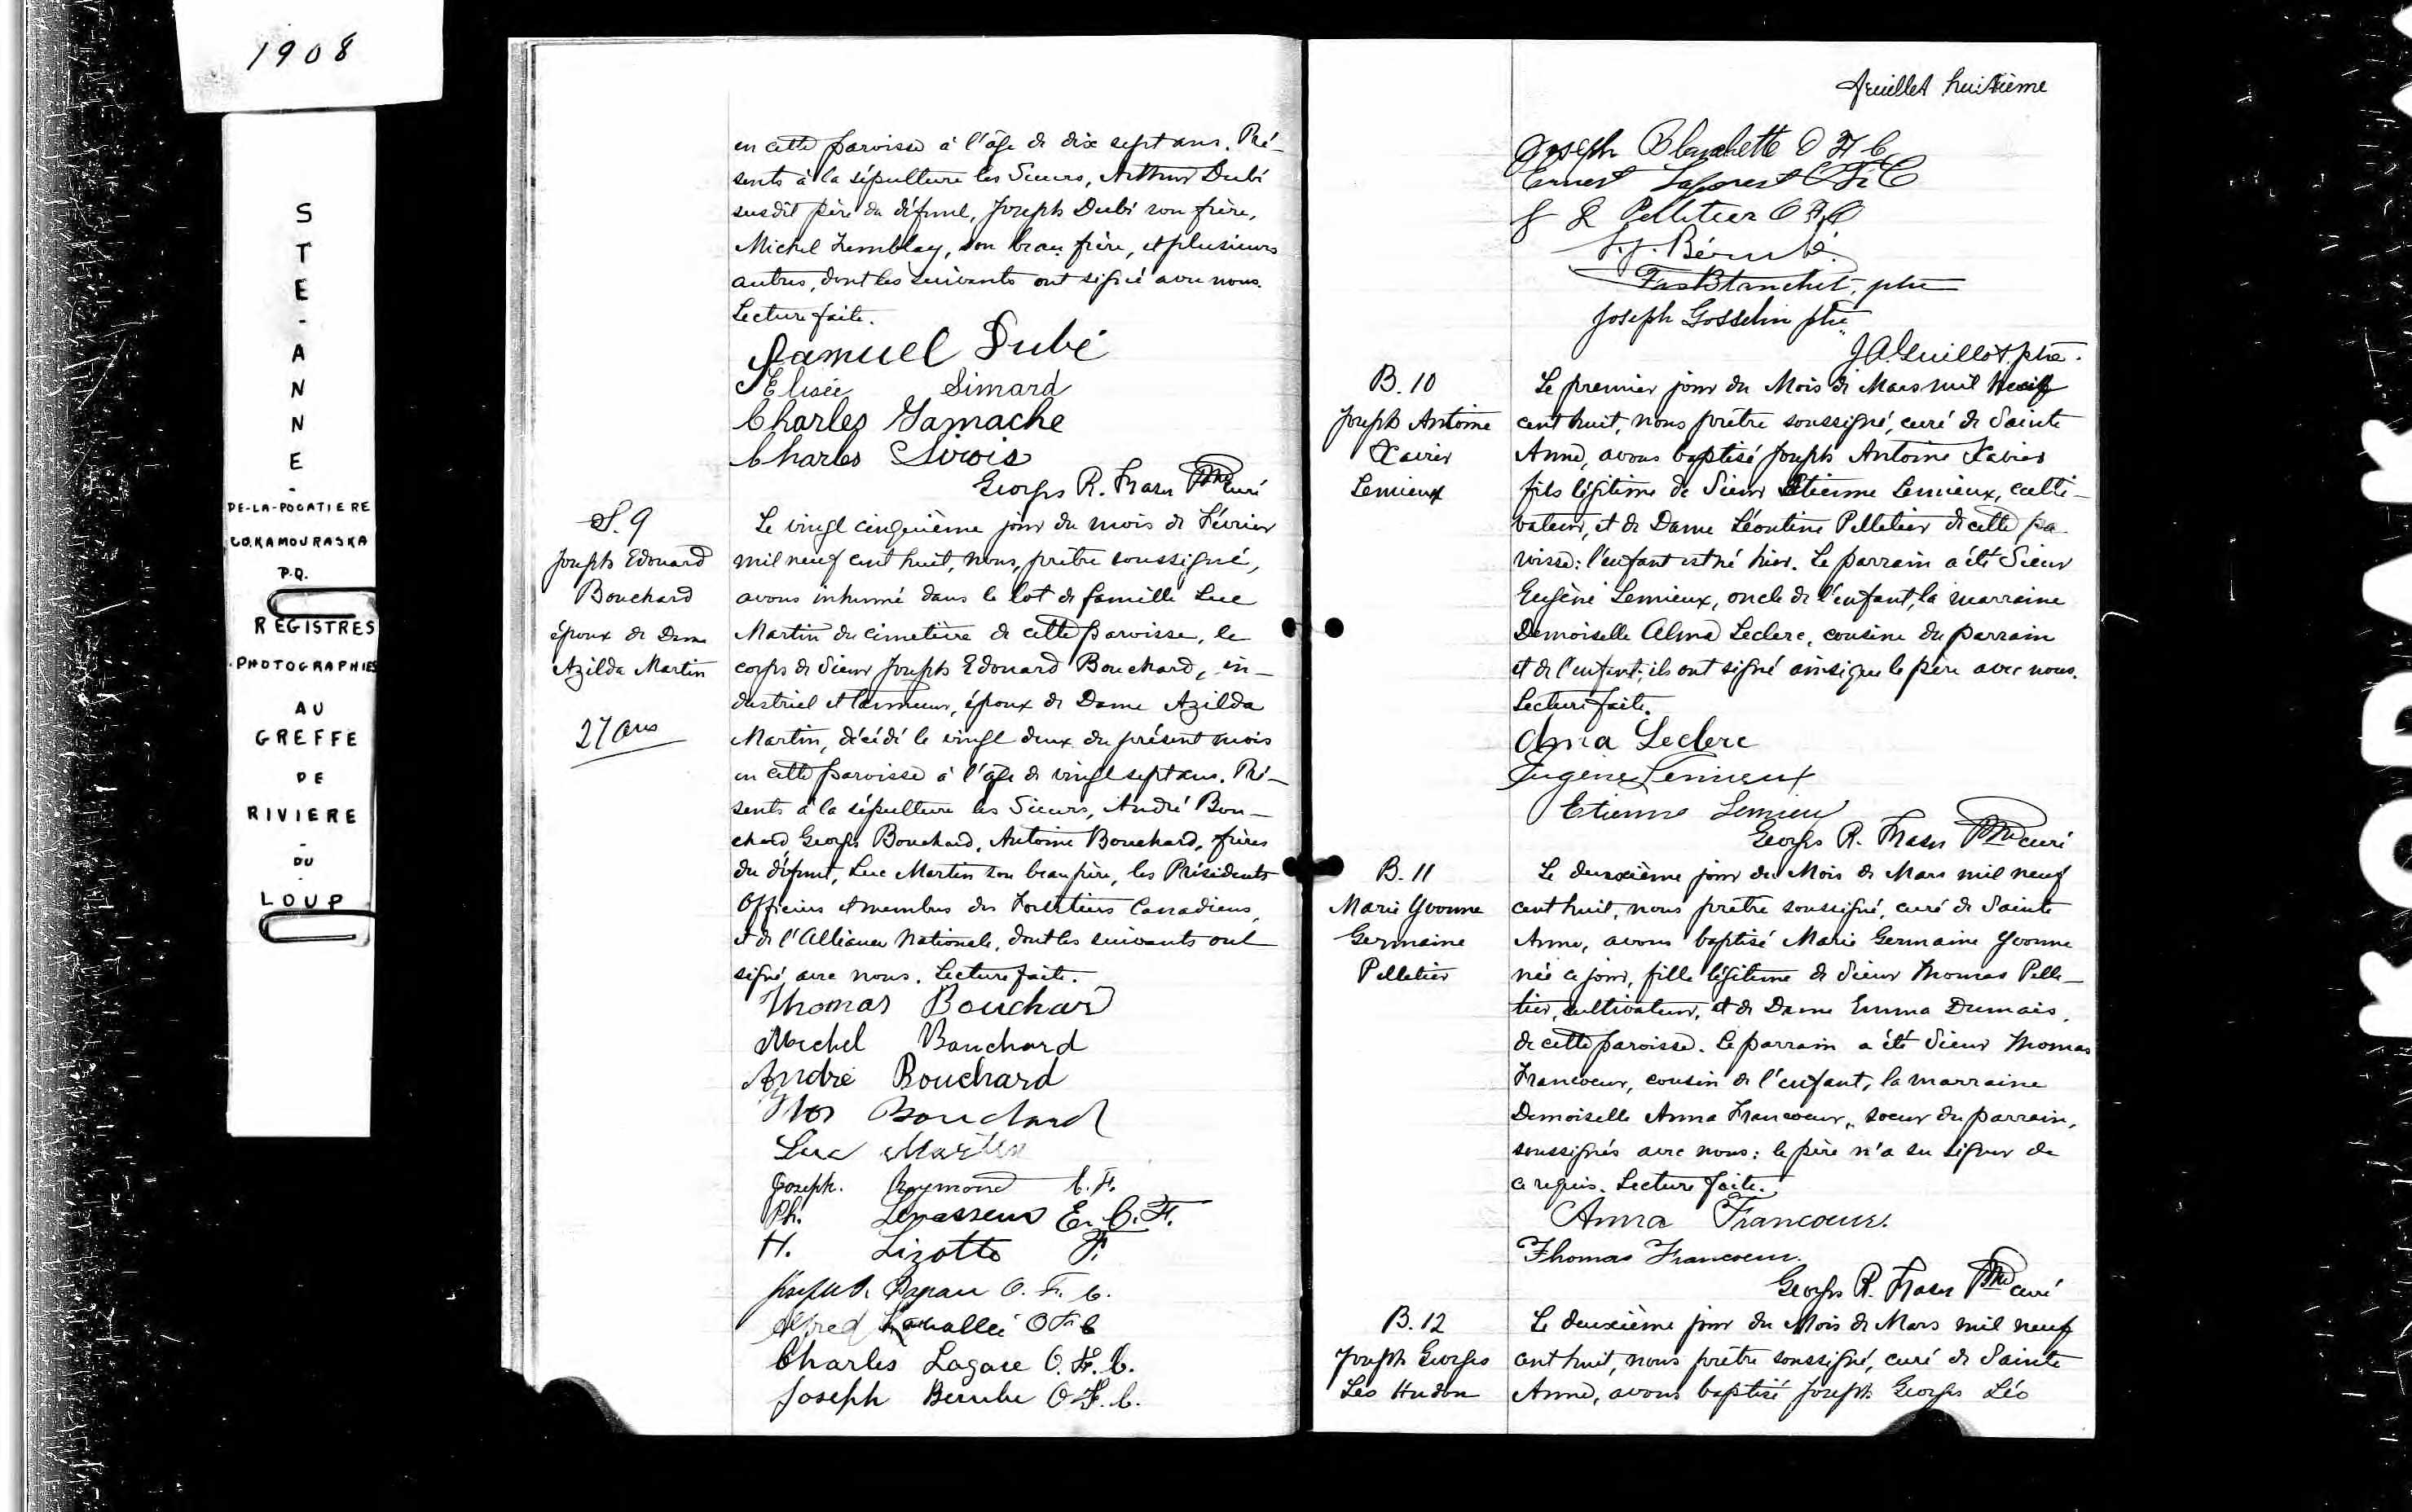 1908
STE-ANNE-
DE-LA-POCATIERE
CO. KAMOURASKA
P.Q.
REGISTRES
PHOTOGRAPHIES
AU
GREFFE
DE
RIVIERE
-
DU
-
LOUP
en cette paroisse à l'âge de dix sept ans. Pré-
sents à la sépulture les Sieurs, Arthur Dubé
susdit père du défunt, Joseph Dubé son frère,
Michel Tremblay, son beau-frère, et plusieurs
autres, dont les suivants ont signé avec nous.
Lecture faite.
Samuel Dubé
Elisée Simard
Charles Gamache
Charles Sirois
Georges R. Fraser Ptre curé
S. 9
Joseph Edouard
Bouchard
époux de Dame
Azilda Martin
27 ans
Le vingt cinquième jour du mois de Février
mil neuf cent huit, nous, prêtre soussigné,
avons inhumé dans le lot de famille Luc
Martin du cimetière de cette paroisse, le
corps de Sieur Joseph Edouard Bouchard, in-
dustriel et , époux de Dame Azilda
Martin, décédé le vingt deux du présent mois
en cette paroisse à l'âge de vingt sept ans. Pré-
sents à la sépulture les Sieurs, André Bou-
chard, Georges Bouchard, Antoine Bouchard, frères
du défunt, Luc Martin son beau père, les Présidents
Officiers et membres des Forestiers Canadiens,
et de l'Alliance Nationale, dont les suivants ont
signé avec nous. Lecture faite.
Thomas Bouchard
Michel Bouchard
André Bouchard
Bouchard
Luc Martin
Joseph. Raymond C. F.
Ph. Levasseur E. C. F.
H. Lizotte F.
O. F. C.
Alfred Lavallée O F C
Charles Lagace O. F. C.
Joseph Berube O F. C.
feuillet huitième
Joseph Blanchette O F C
Ernest Laforest O F C
Pelletier O F C
J. J. Bérubé
Frs Blanchet, ptre
Joseph Gosselin ptre
J A. Guillot, ptre.
B. 10
Joseph Antoine
Xavier
Lemieux
Le premier jour du Mois de Mars mil neuf
cent huit, nous prêtre soussigné, curé de Sainte
Anne, avons baptisé Joseph Antoine Xavier
fils légitime de Sieur Etienne Lemieux, culti-
vateur, et de Dame Léontine Pelletier de cette pa-
roisse: l'enfant est né hier. Le parrain a été Sieur
Eugène Lemieux, oncle de l'enfant, la marraine
Demoiselle Alma Leclerc, cousine du parrain
et de l'enfant; ils ont signé ainsi que le père avec nous.
Lecture faite.
Alma Leclerc
Eugène Lemieux
Etienne Lemieu
Georges R. Fraser Ptre curé
B. 11
Marie Yvonne
Germaine
Pelletier
Le deuxième jour du Mois de Mars mil neuf
cent huit, nous prêtre soussigné, curé de Sainte
Anne, avons baptisé Marie Germaine Yvonne
née ce jour, fille légitime de Sieur Thomas Pelle-
tier, cultivateur, et de Dame Emma Dumais,
de cette paroisse. Le parrain a été Sieur Thomas
Francoeur, cousin de l'enfant, la marraine
Demoiselle Anna Francoeur, soeur du parrain,
soussignés avec nous: le père n'a su signer de
ce requis. Lecture faite.
Anna Francoeur.
Thomas Francoeur.
Georges R. Fraser Ptre curé
B. 12
Joseph Georges
Léo Hudon
Le deuxième jour du Mois de Mars mil neuf
cent huit, nous prêtre soussigné, curé de Sainte
Anne, avons baptisé Joseph Georges Léo